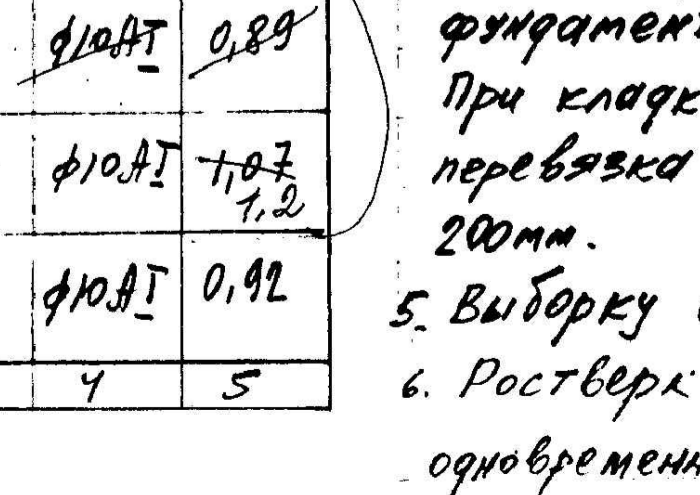 ϕ10АI 0,89
ϕ10АI 1,07
1,2
ϕ10АI 0,92
4 5
фундамен
При кладк
перевязка
200мм.
5. Выборку
6. Ростверк
одновремен